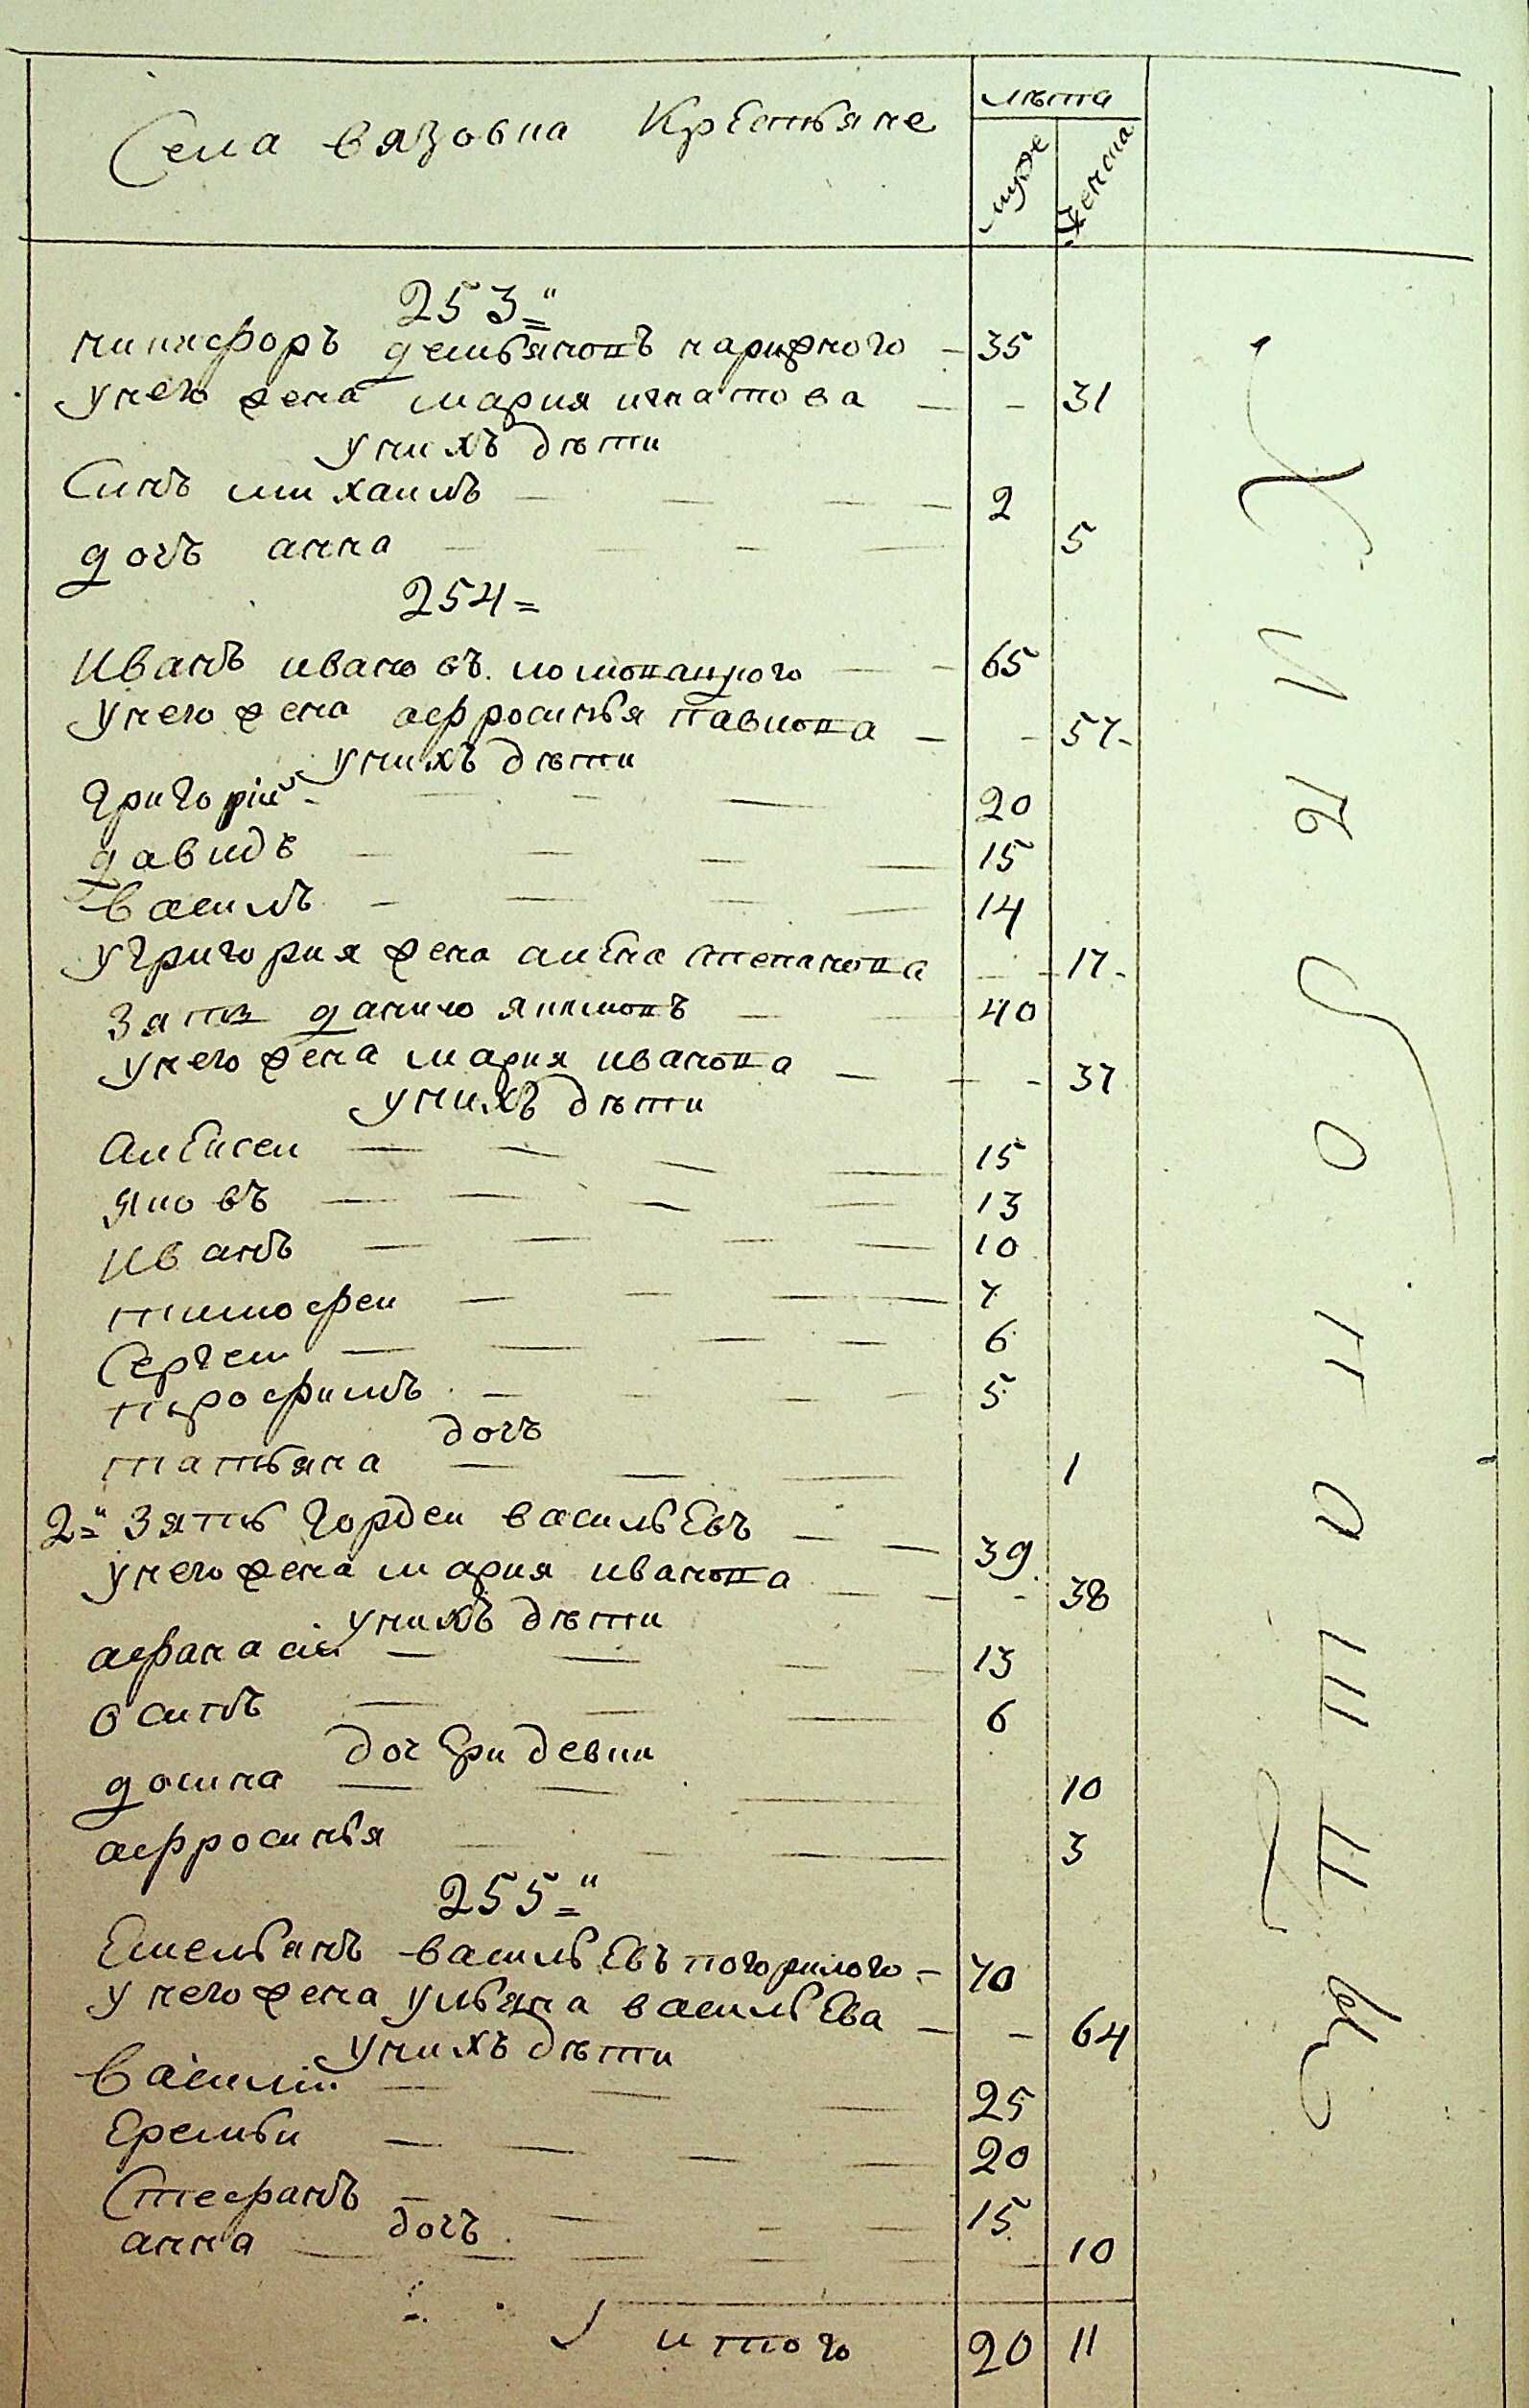 Села вязовка Крестьяне
лѣта
муже
женска
253"
никифоръ демьяновъ нарижного 35
унего жена мария игнатова 31
унихъ дѣти
Синъ михаилъ 2
дочъ анна 5
254
Иванъ ивановъ 65
унего жена афросинья павлова 57
унихъ дѣти
григорій 20
давидъ 15
василь 14
угригория жена алена степанова 17
зять данило якимовъ 40
унего жена мария иванова 37
унихъ дѣти
алексеи 15
яковъ 13
иванъ 10
тимофеи 7
Сергеи 6
трофимъ 5
дочъ
татьяна 1
2" зять гордеи васильевъ 39
унего жена мария иванова 38
унихъ дѣти
афанасіи 13
осипъ 6
дочери девки
домна 10
афросинья 3
255"
Емельянъ васильевъ погорилого 70
унего жена ульяна васильева 64
унихъ дѣти
василіи 25
Еремѣи 20
Стефанъ 15
дочъ
анна 10
итого 20 11